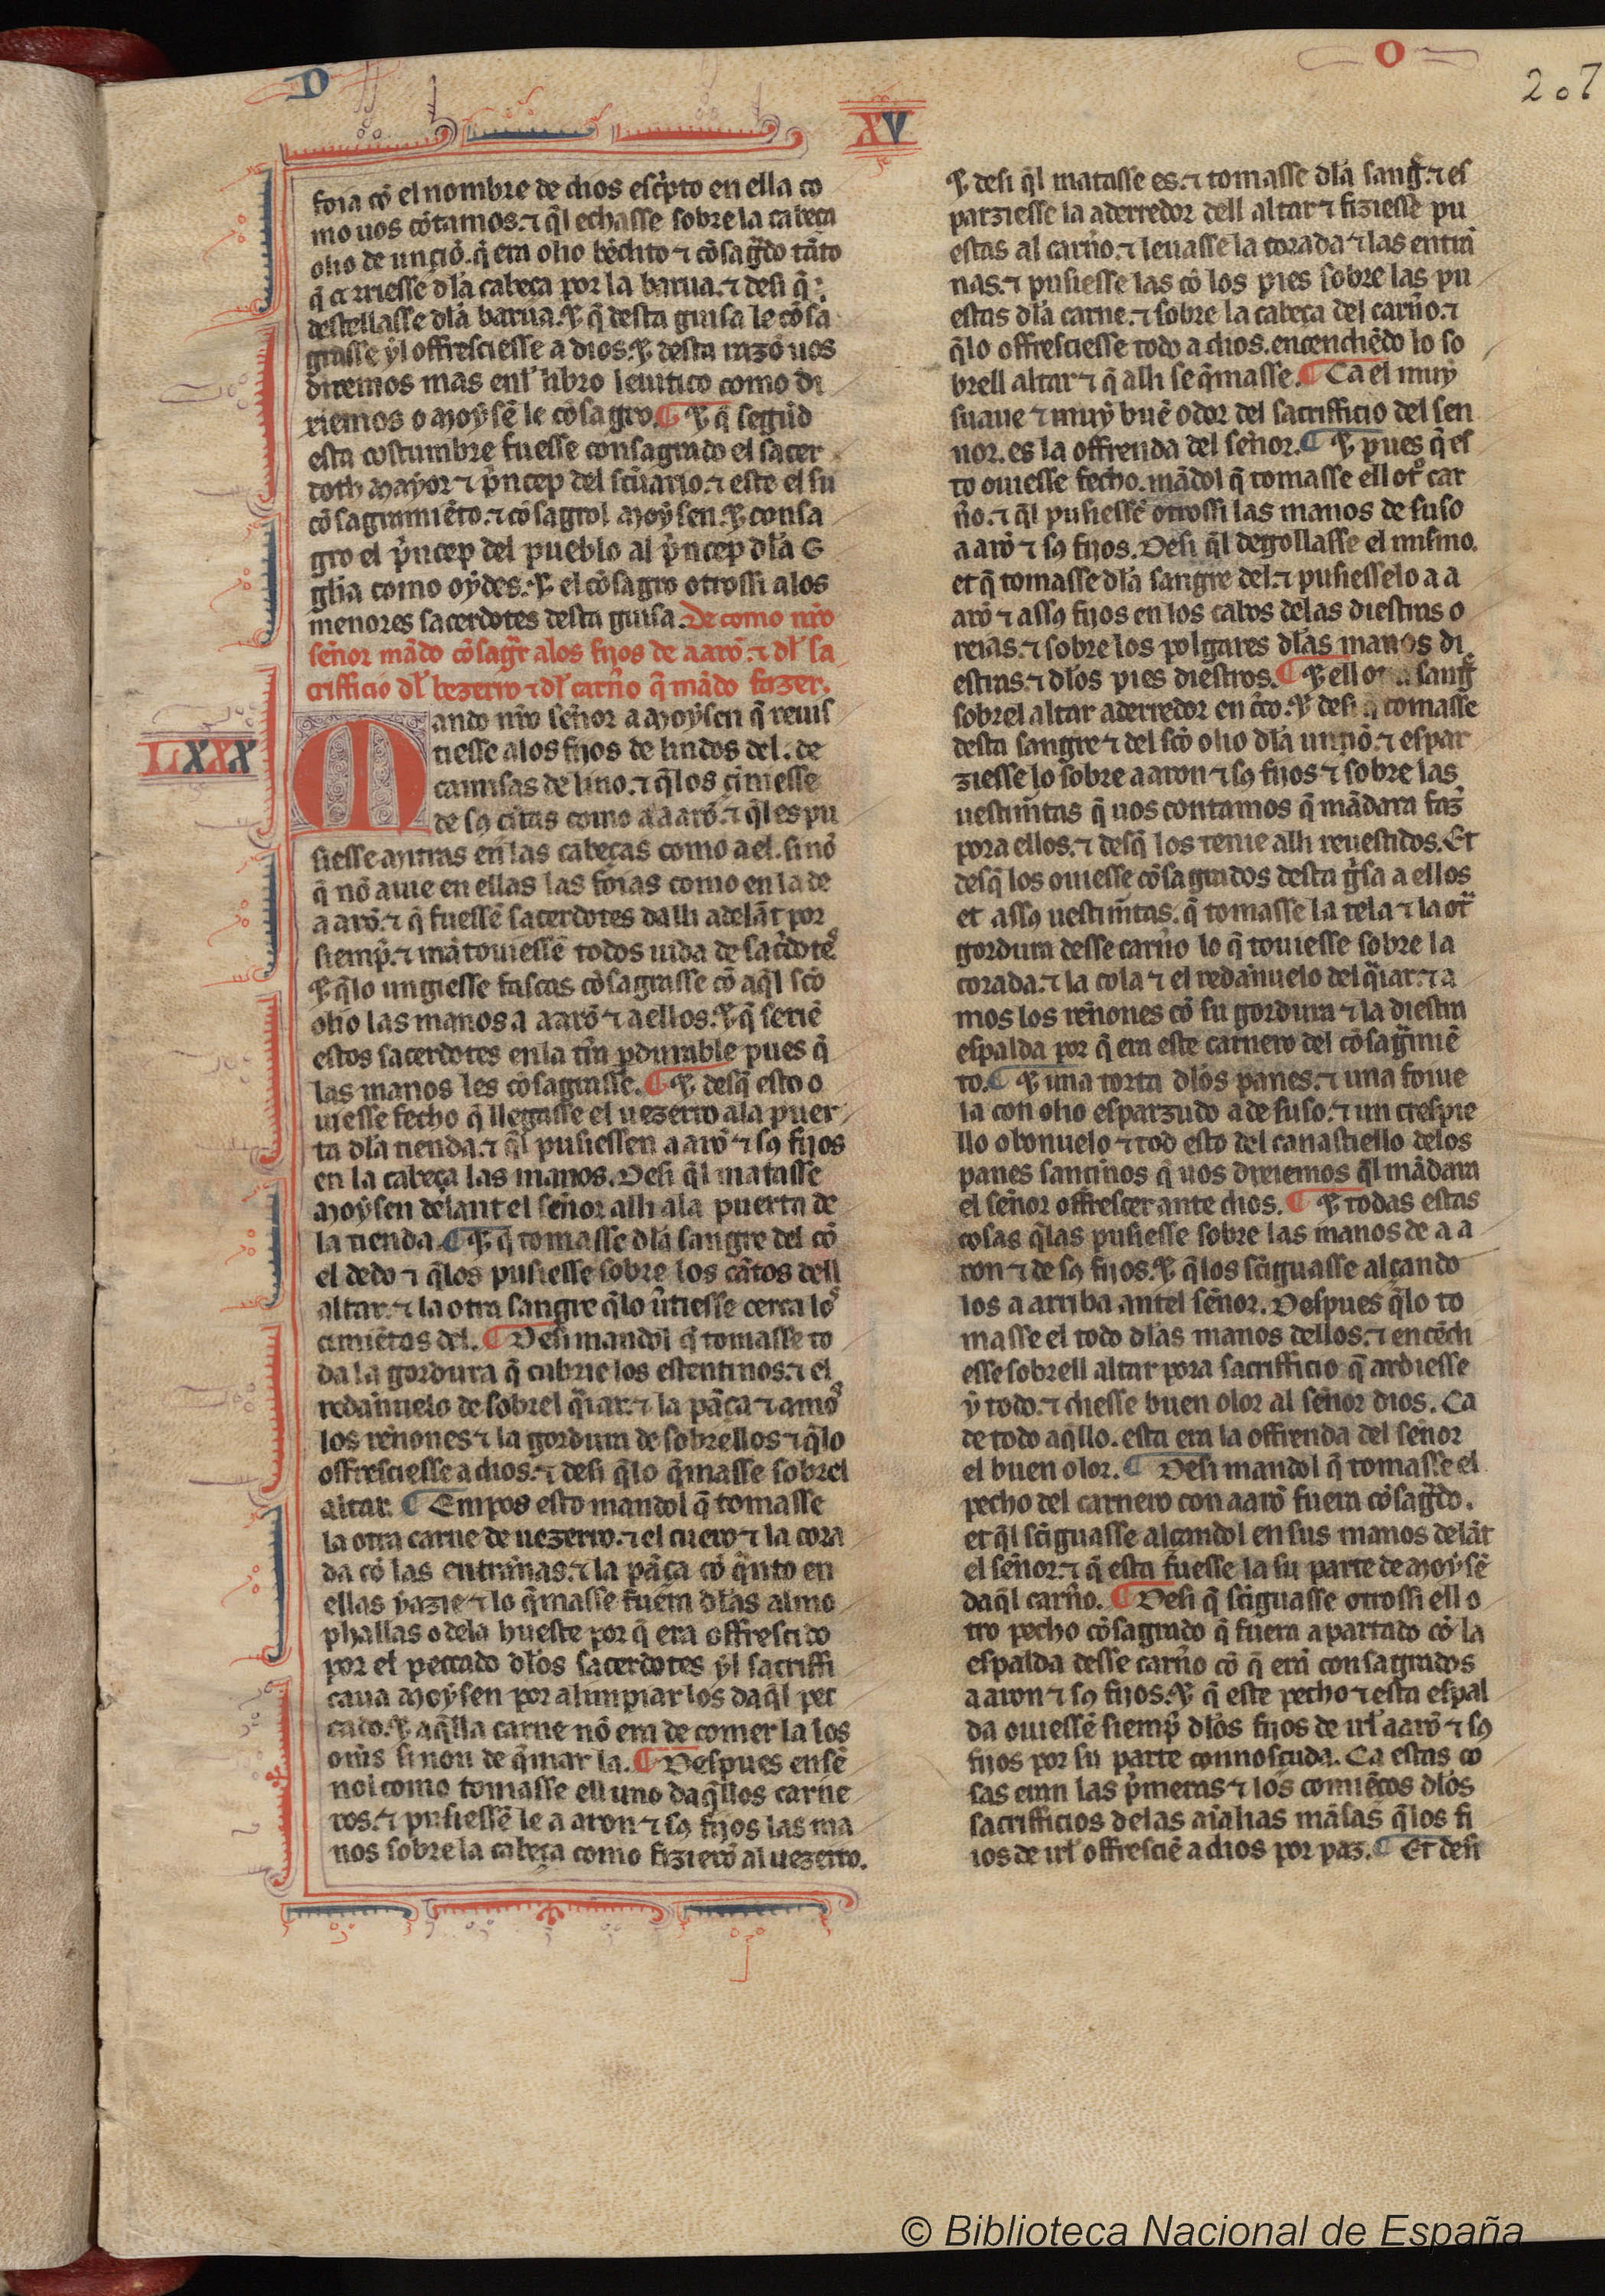 D
O
207
XV
foia cõ el nombre de dios esc̃pto en ella co
mo uos cõtamos. ⁊ q̃l echasse sobre la cabeça
olio de unçiõ. q̃ era olio bẽdito ⁊ cõsag̃do tãto
q̃ corriesse dl̃a cabeça por la barua. ⁊ desi q̃
destellasse dl̃a barua. ⁊ q̃ desta guisa le cõsa
grasse ẏl offresciesse a dios. ⁊ desta razõ uos
diremos mas enl̃ libro leuitico como di
xiemos o moẏsẽ le cõsagro. ¶ ⁊ q̃ segũd
esta costumbre fuesse consagrado el sacer
doth mayor ⁊ p̃ncep del scũario. ⁊ este el su
cõsagramiẽto. ⁊ cõsagrol moẏsen. ⁊ consa
gro el p̃ncep del pueblo al p̃ncep dl̃a e
gl̃ia como oẏdes. ⁊ el cõsagro otrossi alos
menores sacerdotes desta guisa. De como nr̃o
señor mãdo cõsag̃r alos fijos de aarõ. ⁊ dl̃ sa
crifficio dl̃ bezerro ⁊ dl̃ carño q̃ mãdo fazer.
LXXX
Mando nr̃o señor a moẏsen q̃ reuis
tiesse alos fijos de lindos del. de
camisas de lino. ⁊ q̃los çiniesse
de sꝯ cĩtas como a aarõ. ⁊ q̃l es pu
siesse mitras en las cabeças como a el. sinõ
q̃ nõ auie en ellas las foias como en la de
aarõ. ⁊ q̃ fuessẽ sacerdotes dalli adelãt por
siemp̃. ⁊ mãtouiessẽ todos uida de sac̃dotes
⁊ q̃lo ungiesse fascas cõsagrasse cõ aq̃l sc̃o
olio las manos a aarõ ⁊ a ellos. ⁊ q̃ seriẽ
estos sacerdotes enla tr̃ra pdurable pues q̃
las manos les cõsagrasse. ¶ ⁊ desq̃ esto o
uiesse fecho q̃ llegasse el uezerro ala puer
ta dl̃a tienda. ⁊ q̃l pusiessen aarõ ⁊ sꝯ fijos
en la cabeça las manos. Desi q̃l matasse
moẏsen delant el señor alli ala puerta de
la tienda. ¶ ⁊ q̃ tomasse dl̃a sangre del cõ
el dedo ⁊ q̃los pusiesse sobre los cãtos dell
altar. ⁊ la otra sangre q̃lo ũtiesse cerca los
cimiẽtos del. ¶ Desi mandol q̃ tomasse to
da la gordura q̃ cubrie los estentinos. ⁊ el
redañuelo de sobrel q̃iar. ⁊ la pãça ⁊ amos
los reñones ⁊ la gordura de sobrellos ⁊ q̃lo
offresciesse a dios. ⁊ desi q̃lo q̃masse sobrel
altar. ¶ Empos esto mandol q̃ tomasse
la otra carne de uezerro. ⁊ el cuero ⁊ la cora
da cõ las entrañas. ⁊ la pãça cõ q̃nto en
ellas ẏazie ⁊ lo q̃masse fuera dl̃as almo
phallas o dela hueste por q̃ era offrescido
por el peccado dl̃os sacerdotes ẏl sacriffi
caua moẏsen por alimpiar los daq̃l pec
cado. ⁊ aq̃lla carne nõ era de comer la los
om̃s sinon de q̃mar la. ¶ Despues ensẽ
nol como tomasse ell uno daq̃llos carne
ros. ⁊ pusiessẽ le a aron ⁊ sꝯ fijos las ma
nos sobre la cabeça como fizierõ al uezerro.
⁊ desi q̃l matasse es. ⁊ tomasse dl̃a sang̃. ⁊ es
parziesse la aderredor dell altar ⁊ fiziesse pu
estas al carño. ⁊ leuasse la corada ⁊ las entra
nas. ⁊ pusiesse las cõ los pies sobre las pu
estas dl̃a carne. ⁊ sobre la cabeça del carño. ⁊
q̃lo offresciesse todo a dios. encendiẽdo lo so
brell altar ⁊ q̃ alli se q̃masse. ¶ Ca el muẏ
suaue ⁊ muẏ buẽ odor del sacrifficio del sen
nor. es la offrenda del señor. ¶ ⁊ pues q̃ es
to ouiesse fecho. mãdol q̃ tomasse ell otr̃o car
ño. ⁊ q̃l pusiessẽ otrossi las manos de suso
aarõ ⁊ sꝯ fijos. Desi q̃l degollasse el mismo.
et q̃ tomasse dl̃a sangre del. ⁊ pusiesselo a a
arõ ⁊ assꝯ fijos en los cabos delas diestras o
reias. ⁊ sobre los polgares dl̃as manos di
estras. ⁊ dl̃os pies diestros. ¶ ⁊ ell otra sang̃
sobrel altar aderredor en c̃co. ⁊ desi q̃ tomasse
desta sangre ⁊ del sc̃o olio dl̃a unciõ. ⁊ espar
ziesse lo sobre aaron ⁊ sꝯ fijos ⁊ sobre las
uestim̃tas q̃ uos contamos q̃ mãdara faz̃
pora ellos. ⁊ desq̃ los tenie alli reuestidos. Et
desq̃ los ouiesse cõsagrados desta g̃sa a ellos
et assꝯ uestim̃tas. q̃ tomasse la tela ⁊ la otr̃a
gordura desse carño lo q̃ touiesse sobre la
corada. ⁊ la cola ⁊ el redañuelo del q̃iar. ⁊ a
mos los reñones cõ su gordura ⁊ la diestra
espalda por q̃ era este carnero del cõsag̃miẽ
to. ¶ ⁊ una torta dl̃os panes. ⁊ una foiue
la con olio esparzudo a de suso. ⁊ un crespie
llo o bonuelo ⁊ tod esto del canastiello delos
panes sancinos q̃ uos dixiemos q̃l mãdara
el señor offrescer ante dios. ¶ ⁊ todas estas
cosas q̃las pusiesse sobre las manos de a a
ron ⁊ de sꝯ fijos. ⁊ q̃los sc̃iguasse alçando
los a arriba antel señor. Despues q̃lo to
masse el todo dl̃as manos dellos. ⁊ encẽdi
esse sobrell altar pora sacrifficio q̃ ardiesse
ẏ todo. ⁊ diesse buen olor al señor dios. Ca
de todo aq̃llo. esta era la offrenda del señor
el buen olor. ¶ Desi mandol q̃ tomasse el
pecho del carnero con aarõ fuera cõsag̃do.
et q̃l sc̃iguasse alçandol en sus manos delãt
el señor. ⁊ q̃ esta fuesse la su parte de moẏsẽ
daq̃l carño. ¶ Desi q̃ sc̃iguasse otrossi ell o
tro pecho cõsagrado q̃ fuera apartado cõ la
espalda desse carño cõ q̃ erã consagrados
aaron ⁊ sꝯ fijos. ⁊ q̃ este pecho ⁊ esta espal
da ouiessẽ siemp̃ dl̃os fijos de irl̃ aarõ ⁊ sꝯ
fijos por su parte connosçuda. Ca estas co
sas eran las p̃meras ⁊ los comiẽços dl̃os
sacrifficios delas aĩalias mãsas q̃los fi
ios de irl̃ offresciẽ a dios por paz. ¶ Et desi
© Biblioteca Nacional de España